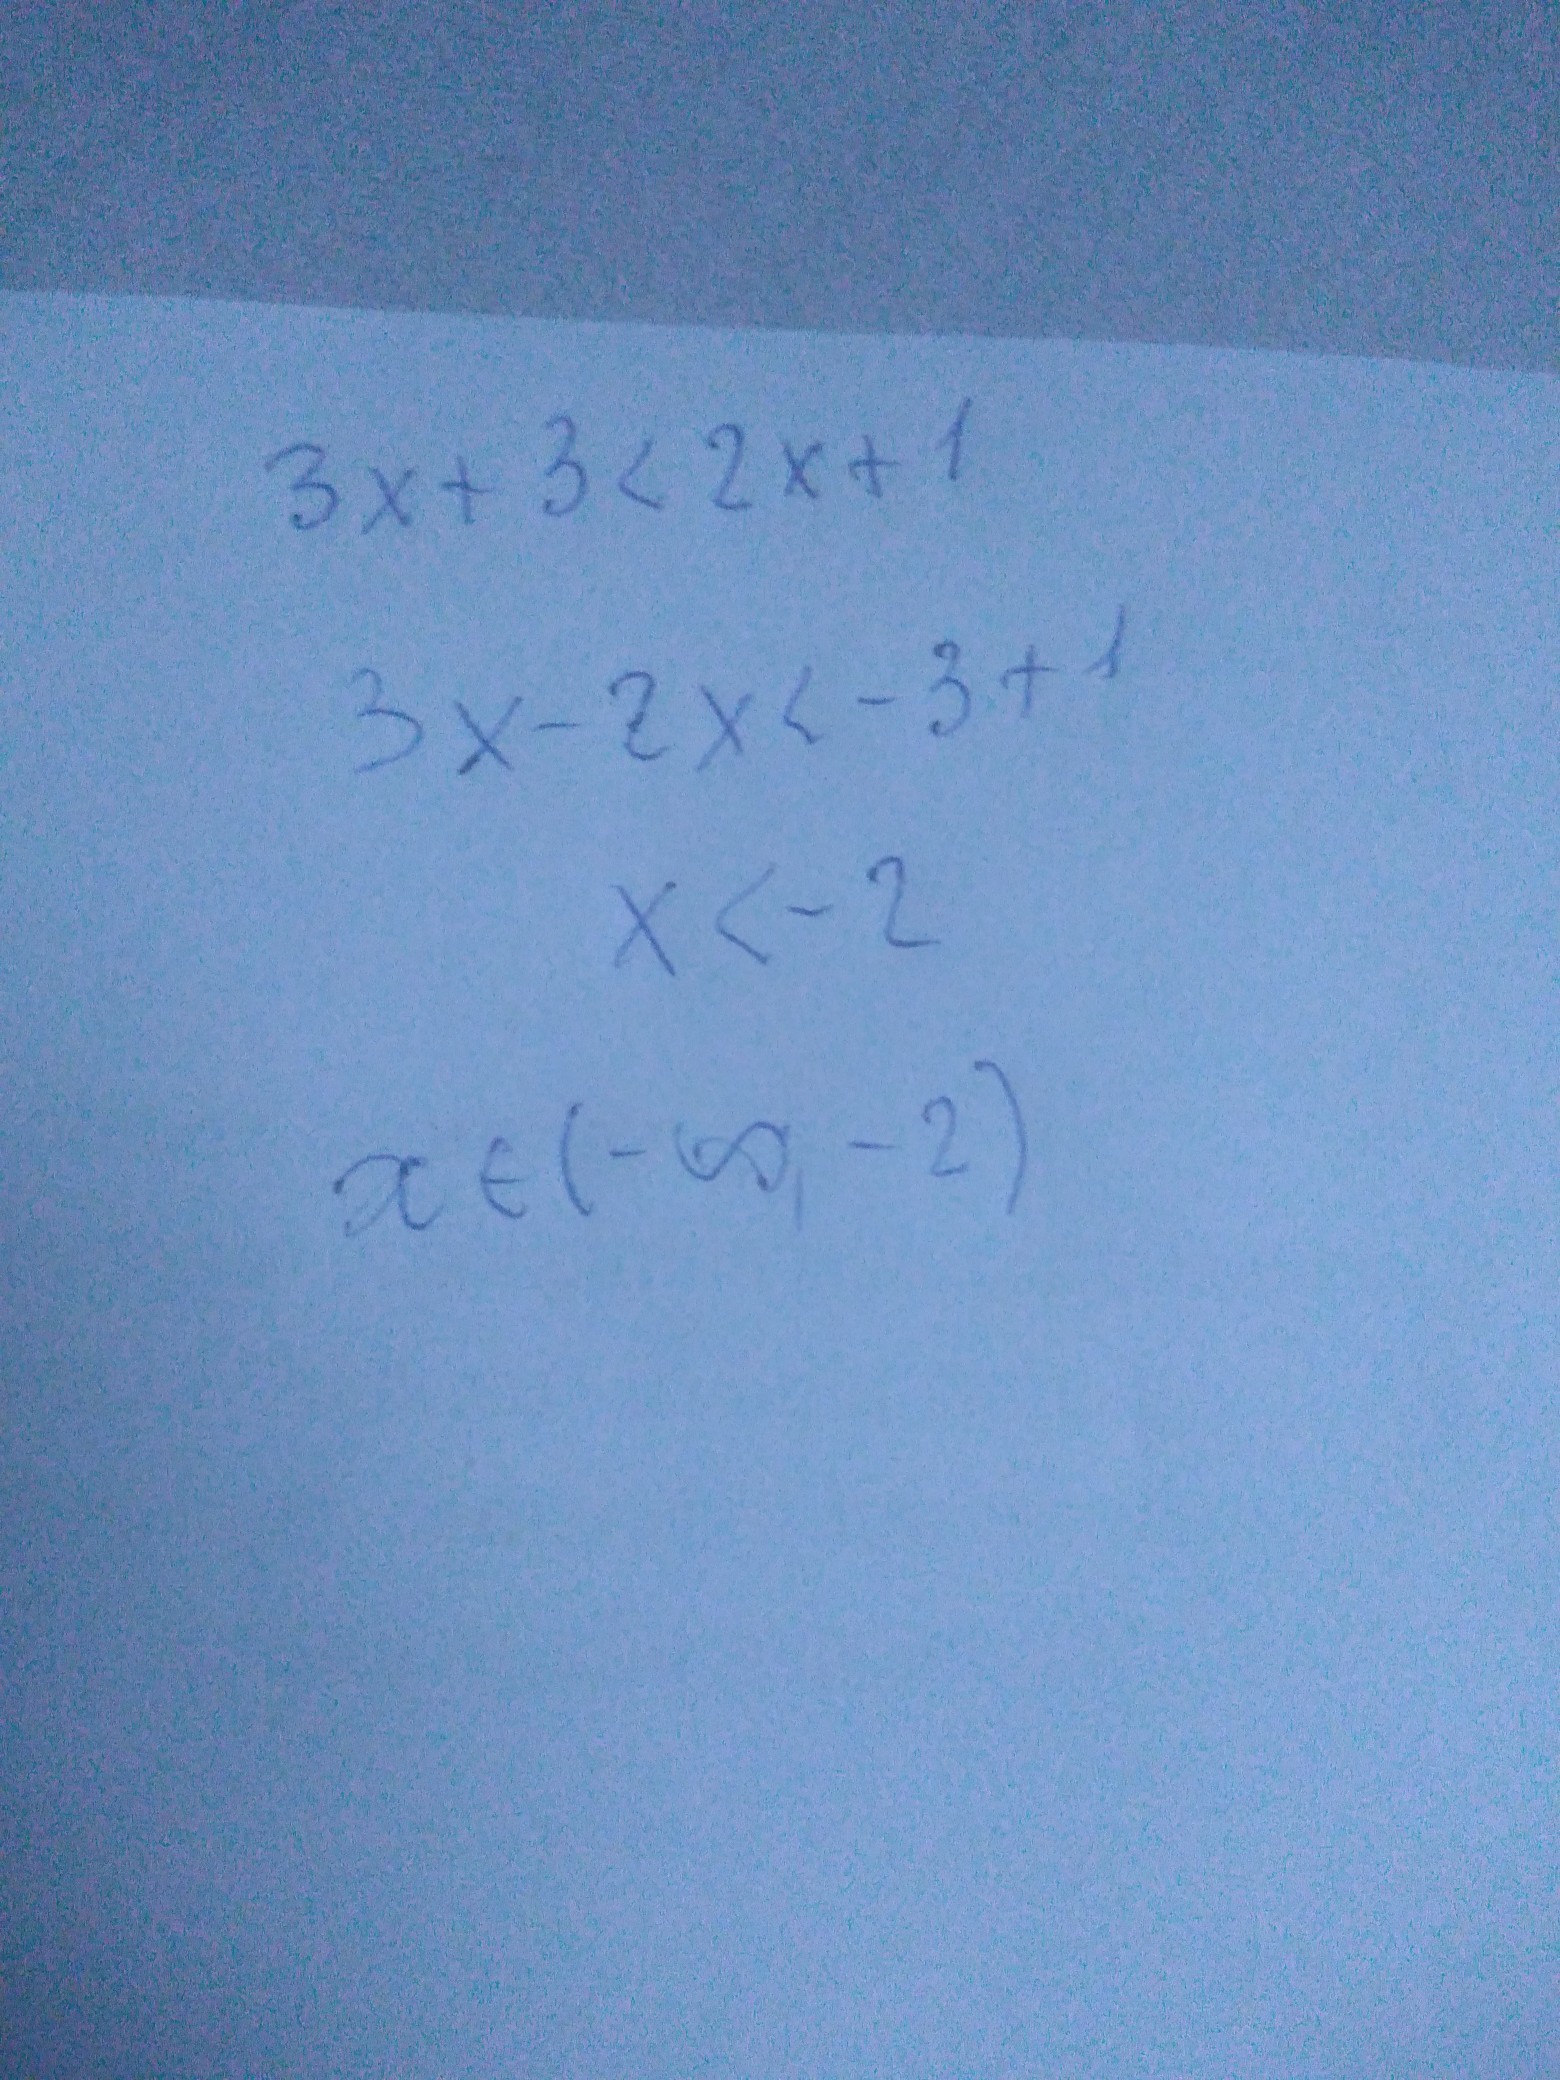 3x+3<2x+1
3x-2x<-3+1
x<-2
x∈(-∞,-2)